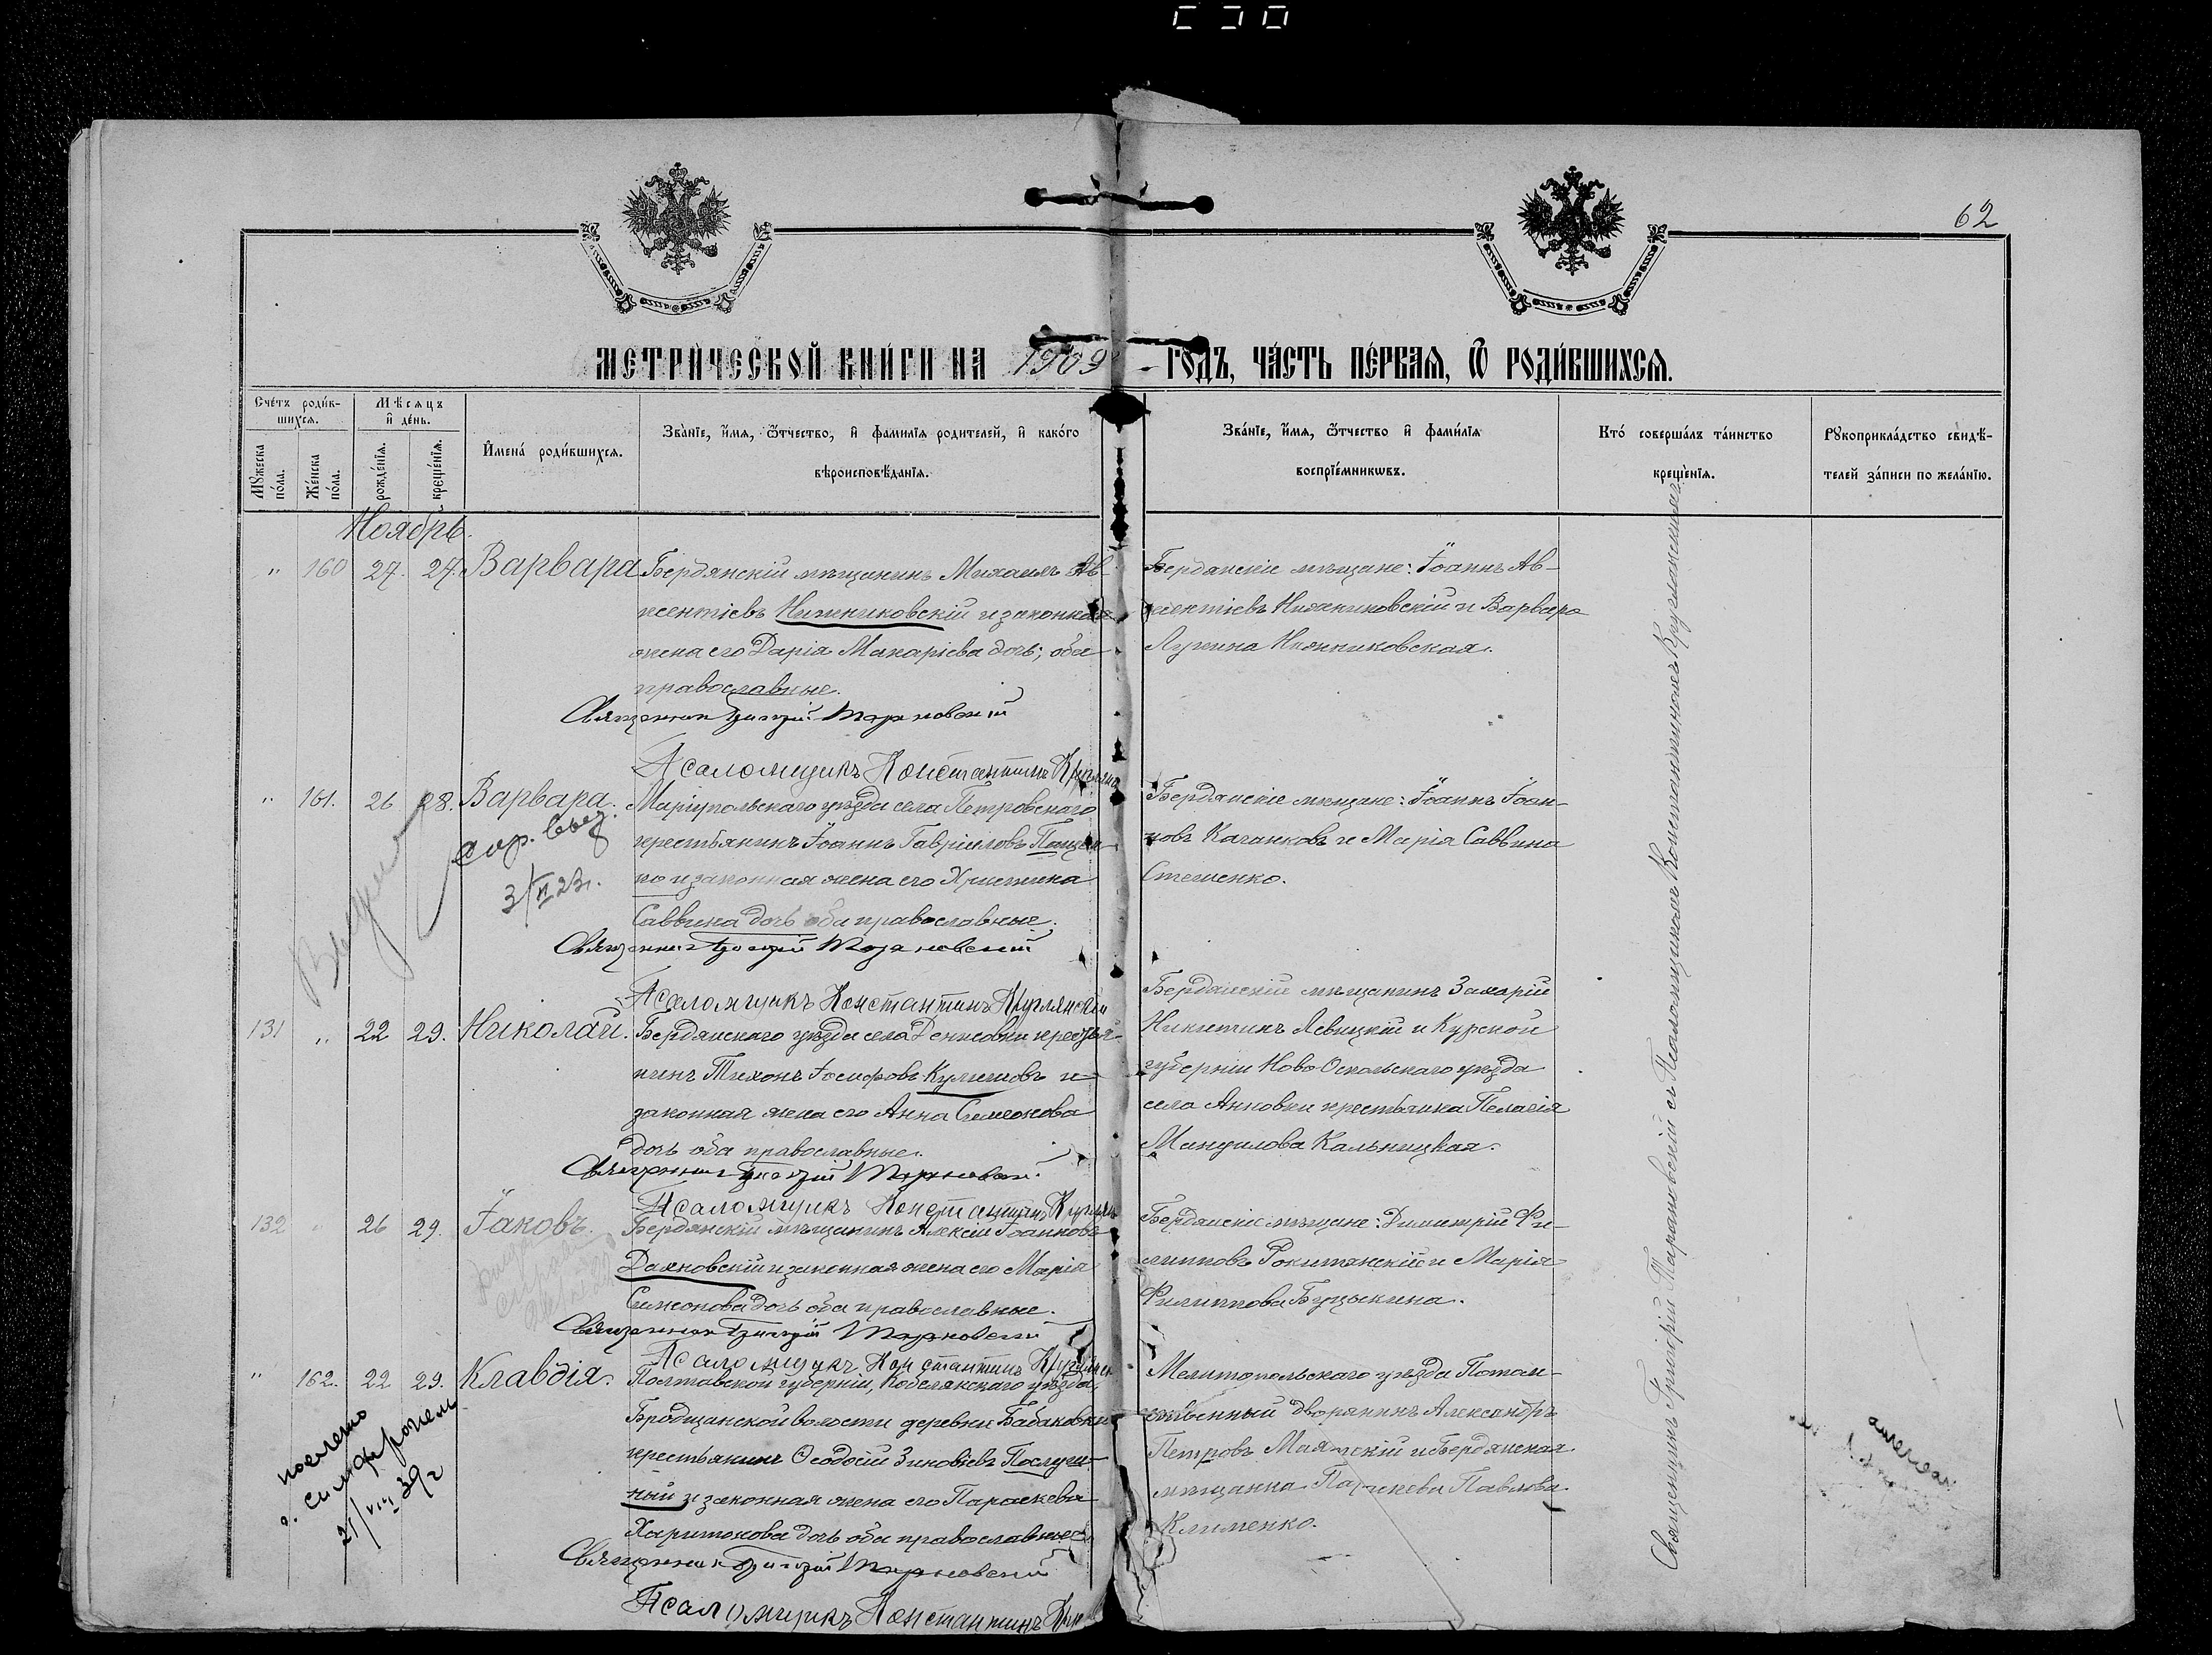 62
МЕТРИЧЕСКОЙ КНИГИ НА 1909 ГОДЪ, ЧАСТЬ ПЕРВАЯ, Ѿ РОДИВШИХСЯ.
Счетъ родив-
шихся.
Мѣсяцъ
и день.
Мужеска
пола.
Женска
пола.
рожденія.
крещенія.
Имена родившихся.
Званіе, имя, ѿтчество, и фамилія родителей, и какого
вѣроисповѣданія.
Званіе, имя, ѿтчество и фамилія
воспріемникωвъ.
Кто совершалъ таинство
крещенія.
Рукоприкладство свидѣ-
телей записи по желанію.
Ноябрь.
" 160 27. 27. Варвара
Бердянскій мѣщанинъ Михаилъ Ав-
ксентіевъ Нижниковскій и законная
жена его Дарія Макаріева дочь; оба
православные.
Священникъ Григорій Тарановскій
Псаломщикъ Константинъ
Бердянскіе мѣщане: Іоаннъ Ав-
ксентіевъ Нижниковскій и Варвара
Лукина Нижниковская.
" 161. 26 28. Варвара.
3/VI 23г.
Маріупольскаго уѣзда села Петровскаго
крестьянинъ Іоаннъ Гавріиловъ
ко и законная жена его Христина
Саввина дочь оба православные.
Священникъ Григорій Тарановскій
Псаломщикъ Константинъ Круглянскій
Бердянскіе мѣщане: Іоаннъ Іоан-
новъ Каганковъ и Марія Саввина
Стешенко.
131 " 22 29. Николай.
Бердянскаго уѣзда села Денисовки крестья-
нинъ Тихонъ Іосифовъ Кулешовъ и
законная жена его Анна Симеонова
дочь оба православные.
Священникъ Григорій Тарановскій
Псаломщикъ Константинъ
Бердянскій мѣщанинъ Захарій
Никитинъ Левицкій и Курской
губерніи Ново Оскольскаго уѣзда
села Анновки крестьянка Пелагія
Мануилова Кальницкая.
132 " 26 29. Іаковъ.
Бердянскій мѣщанинъ Алексій Іоанновъ
Даяновскій и законная жена его Марія
Симеонова дочь оба православные.
Священникъ Григорій Тарановскій
Псаломщикъ Константинъ
Бердянскіе мѣщане: Димитрій Фи-
липповъ Рокитянскій и Марія
Филиппова Буцыкина.
" 162. 22 29. Клавдія.
послано
г. Симферополь
21/VIII 39г
Полтавской губерніи, Кобелякскаго уѣзда,
Бродщанской волости деревни Бабаковки
крестьянинъ Ѳеодосій Зиновіевъ Послуш-
ный и законная жена его Параскева
Харитонова дочь оба православные.
Священникъ Григорій Тарановскій
Псаломщикъ Константинъ
Мелитопольскаго уѣзда Потом-
ственный дворянинъ Александръ
Петровъ Маятскій и Бердянская
мѣщанка Параскева Павлова
Клименко.
Священникъ Григорій Тарановскій съ Псаломщикомъ Константиномъ Круглянскимъ